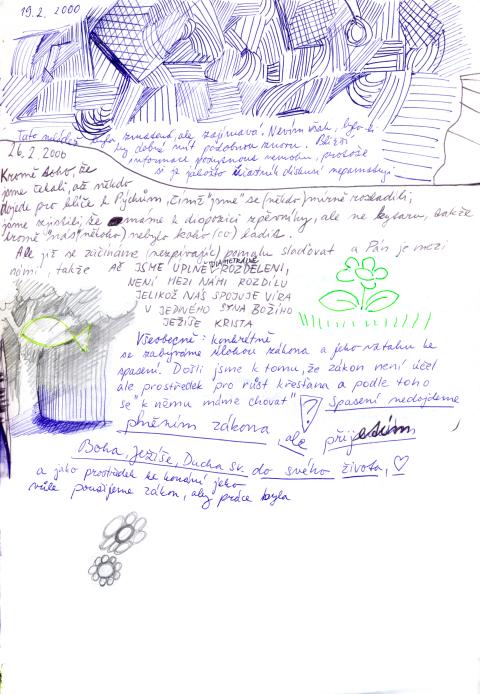 19.2. 2000
Tato mládež byla zmatená, ale zajímavá. Nevím však, bylo-li
by dobré mít podobnou znovu. Bližší
informace poskytnout nemohu, protože
si je jakožto účastník diskusi nepamatuji
26.2. 2000
Kromě toho, že
jsme čekali, až někdo
dojede pro klíče k Pýchům, čímž "jsme" se (někdo) mírně rozladili,
jsme zjistili, že máme k dispozici zpěvníky, ale ne kytaru, takže
kromě "nás" (někoho) nebylo koho (co) ladit.
Ale již se začínáme (nezpívajíc) pomalu slaďovat a Pán je mezi
námi, takže AČ JSME ÚPLNĚ DIAMETRÁLNĚ ROZDĚLENI,
NENÍ MEZI NÁMI ROZDÍLU
JELIKOŽ NÁS SPOJUJE VÍRA
V JEDINÉHO SYNA BOŽÍHO
JEŽÍŠE KRISTA
Všeobecně: konkrétně
se zabýváme úlohou zákona a jeho vztahu ke
spasení. Došli jsme k tomu, že zákon není účel
ale prostředek pro růst křesťana a podle toho
se "k němu máme chovat" ! Spasení nedojdeme
plněním zákona, ale přijetím
Boha, Ježíše, Ducha sv. do svého života, ♡
a jako prostředek ke konání jeho
vůle použijeme zákon, aby práce byla